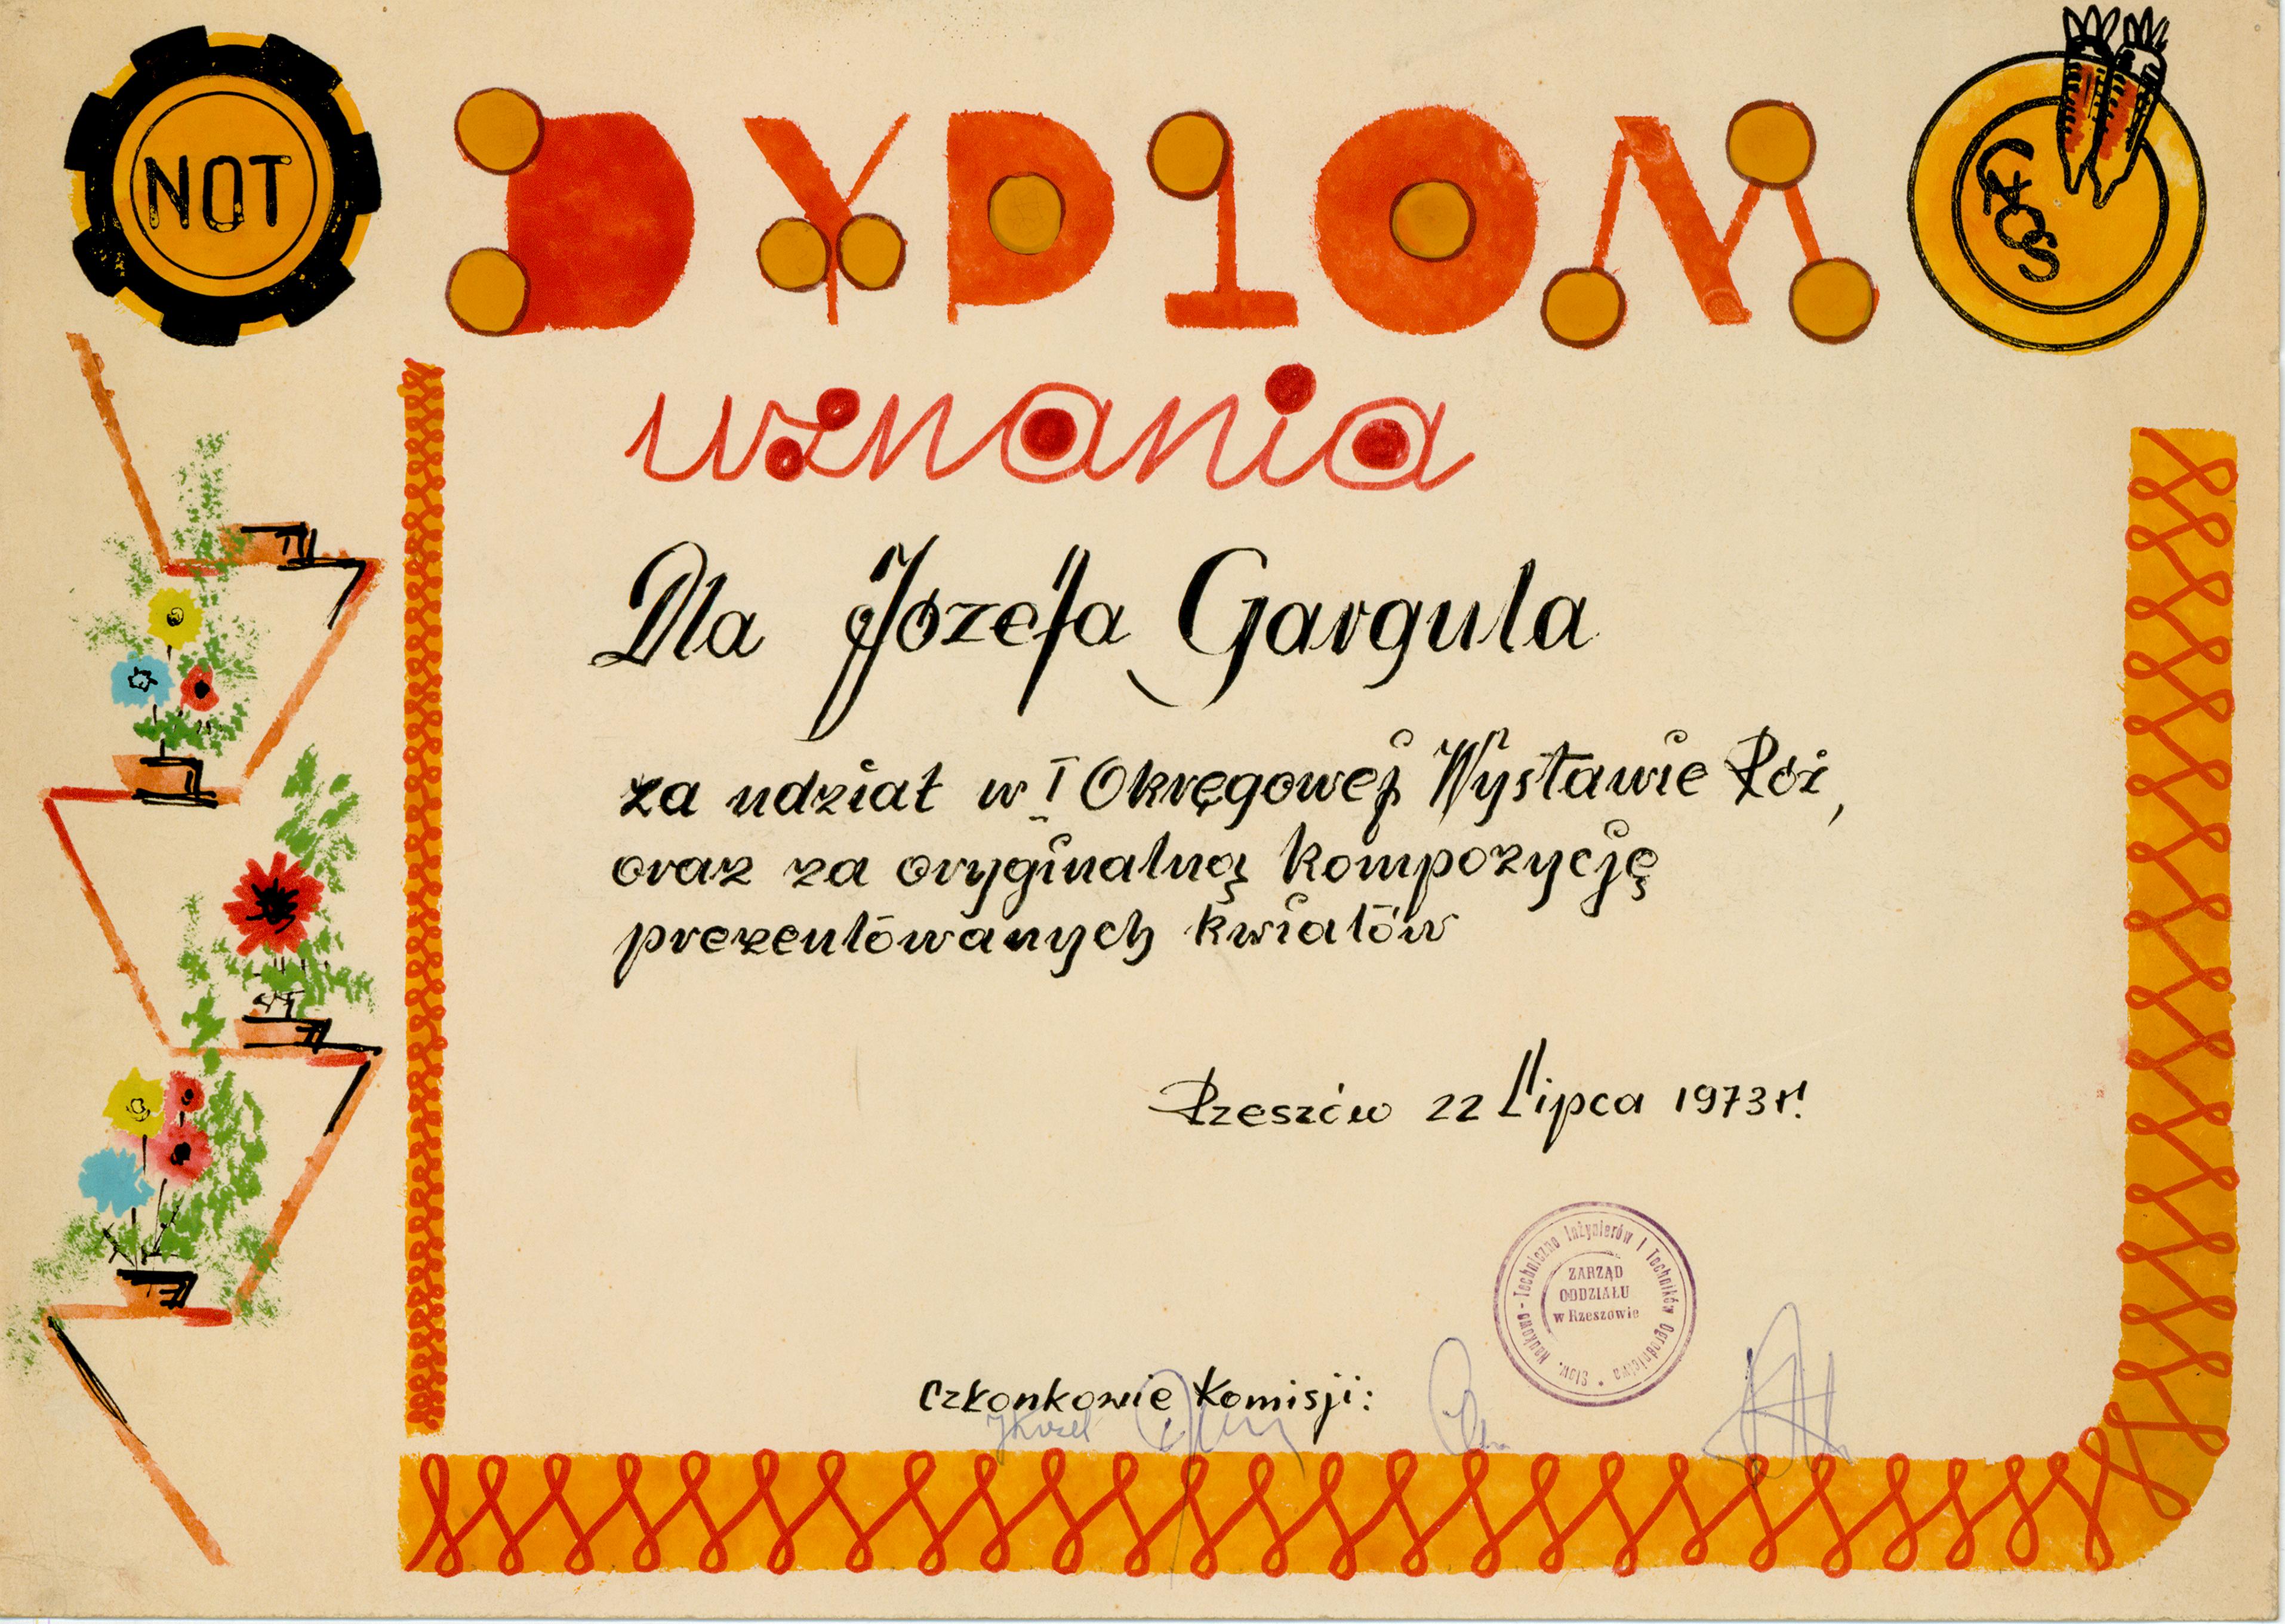 NOT
DYPLOM
CHOS
uznania
Dla Józefa Gargula
za udział w I Okręgowej Wystawie Róż,
oraz za oryginalną kompozycję
prezentowanych kwiatów
Rzeszów 22 Lipca 1973 r.
Stow. Naukowo-Techniczne Inżynierów i Techników Ogrodnictwa
ZARZĄD
ODDZIAŁU
w Rzeszowie
Członkowie Komisji: